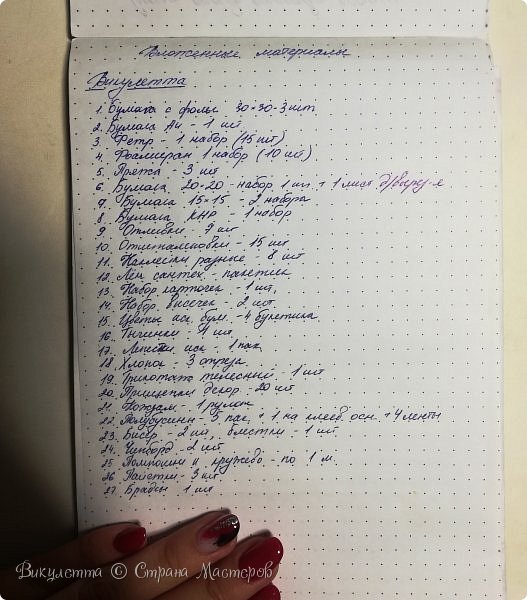 Вложенные материалы
Викулетта
1. Бумага с фольг 30×30 - 3 шт
2. Бумага А4 - 1 шт
3. Фетр - 1 набор (15 шт)
4. Фоамиран 1 набор (10 шт)
5. Пряжа - 3 шт
6. Бумага 20×20 - набор 1 шт + 1 лист д/выруб-я
7. Бумага 15×15 - 2 набора
8. Бумага КНР - 1 набор
9. Отливки - 7 шт
10. Отштамповки - 15 шт
11. Наклейки разные - 8 шт
12. Лён сантех - пакетик
13. Набор карточек - 1 шт,
14. Набор высечек - 2 шт.
15. Цветы иск. бум. - 4 букетика
16. Тычинки - 4 шт
17. иск - 1 пак
18. Хлопок - 3 отреза
19. Трикотаж телесный - 1 шт
20. Прищепки декор - 20 шт
21. 1 рулон
22. Полубусины - 3 пак + 1 на клеев. осн. + 4 ленты
23. Бисер - 2 шт, блестки - 1 шт
24. Чипборд - 2 шт
25. Помпошки и кружево - по 1 м.
26. Пайетки - 3 шт
27. Брадсы 1 шт
Викулетта © Страна Мастеров